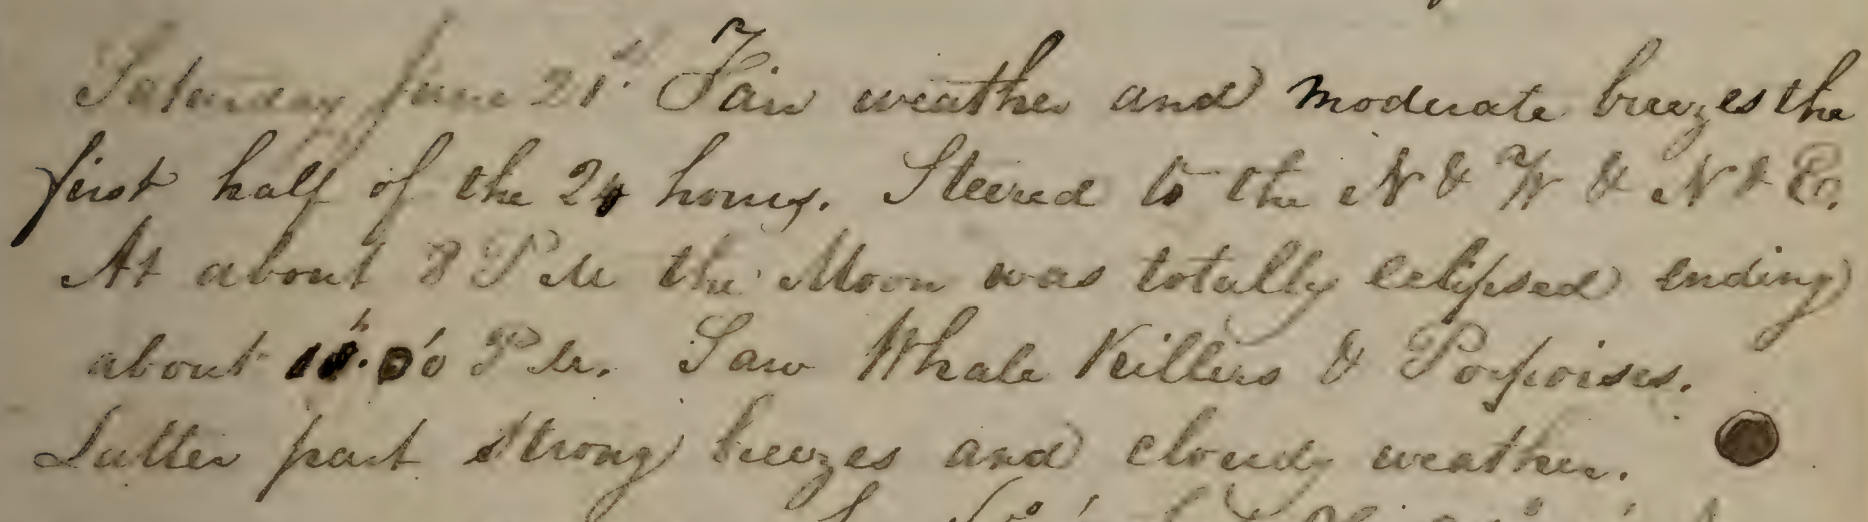 Saturday June 21st Fair weather and moderate breezes the
first half of the 24 hours. Steered to the N & W & N & E.
At about 8 P M the Moon was totally eclipsed ending
about P M. Saw Whale Killers & Porpoises.
Latter part strong breezes and cloudy weather.